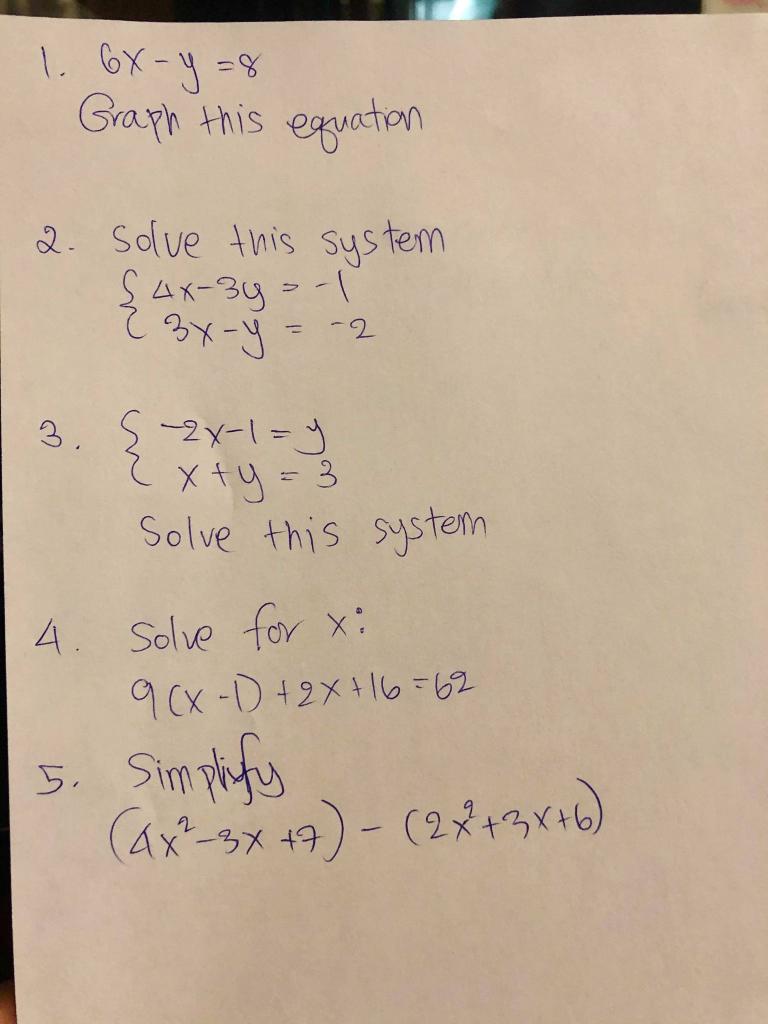 1. 6x-y=8
Graph this equation
2. Solve this system
{ 4x-3y = -1
{ 3x-y = -2
3. { -2x-1=y
{ x+y=3
Solve this system
4. Solve for x:
9(x-1)+2x+16=62
5. Simplify
(4x²-3x+7) - (2x²+3x+6)